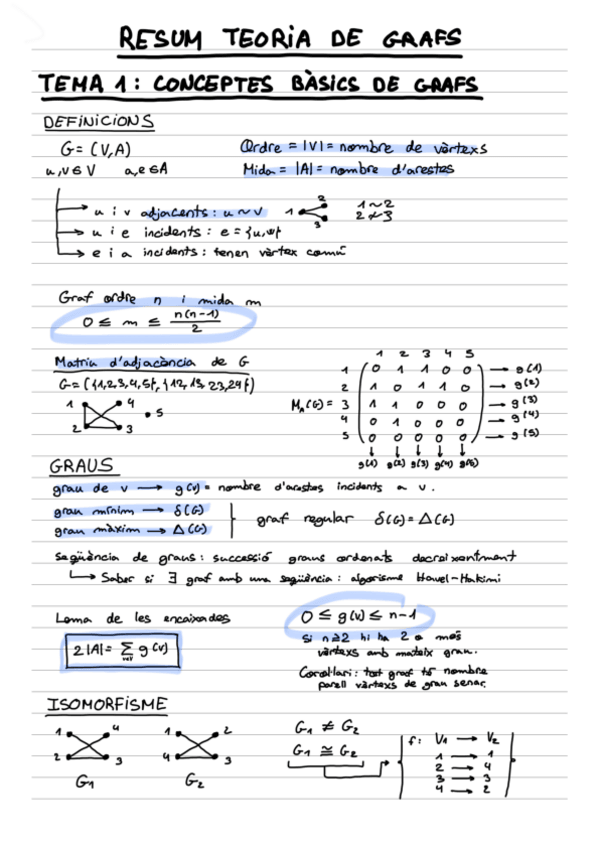 RESUM TEORIA DE GRAFS
TEMA 1: CONCEPTES BÀSICS DE GRAFS
DEFINICIONS
G = (V,A)
Ordre = |V| = nombre de vèrtexs
u,v ∈ V a,e ∈ A
Mida = |A| = nombre d'arestes
u i v adjacents: u ~ v
1 2 3
1 ~ 2
2 ≁ 3
u i e incidents: e = {u,w}
e i a incidents: tenen vèrtex comú
Graf ordre n i mida m
0 ≤ m ≤ n(n-1)/2
Matriu d'adjacència de G
G = ({1,2,3,4,5}, {12,13,23,24})
1 4 5
2 3
1 2 3 4 5
1 0 1 1 0 0 → g(1)
2 1 0 1 1 0 → g(2)
M_A(G) = 3 1 1 0 0 0 → g(3)
4 0 1 0 0 0 → g(4)
5 0 0 0 0 0 → g(5)
g(1) g(2) g(3) g(4) g(5)
GRAUS
grau de v → g(v) = nombre d'arestes incidents a v.
grau mínim → δ(G)
grau màxim → Δ(G)
graf regular δ(G) = Δ(G)
Seqüència de graus: successió graus ordenats decreixentment
↳ Saber si ∃ graf amb una seqüència: algorisme Havel-Hakimi
Lema de les encaixades
2|A| = Σ g(v)
v∈V
0 ≤ g(v) ≤ n-1
Si n≥2 hi ha 2 o més
vèrtexs amb mateix grau.
Corol·lari: tot graf té nombre
parell vèrtexs de grau senar.
ISOMORFISME
1 4
2 3
G1
1 2
4 3
G2
G1 ≠ G2
G1 ≅ G2
f: V1 → V2
1 → 1
2 → 4
3 → 3
4 → 2